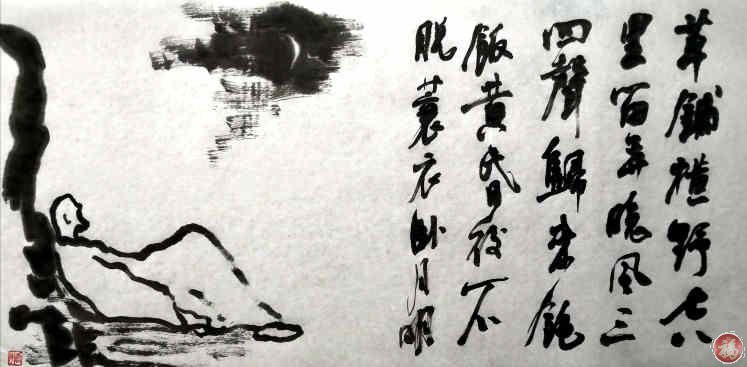 草鋪橫野六七
里笛弄晚風三
四聲歸來飽
飯黃昏後不
脫蓑衣臥月明
福